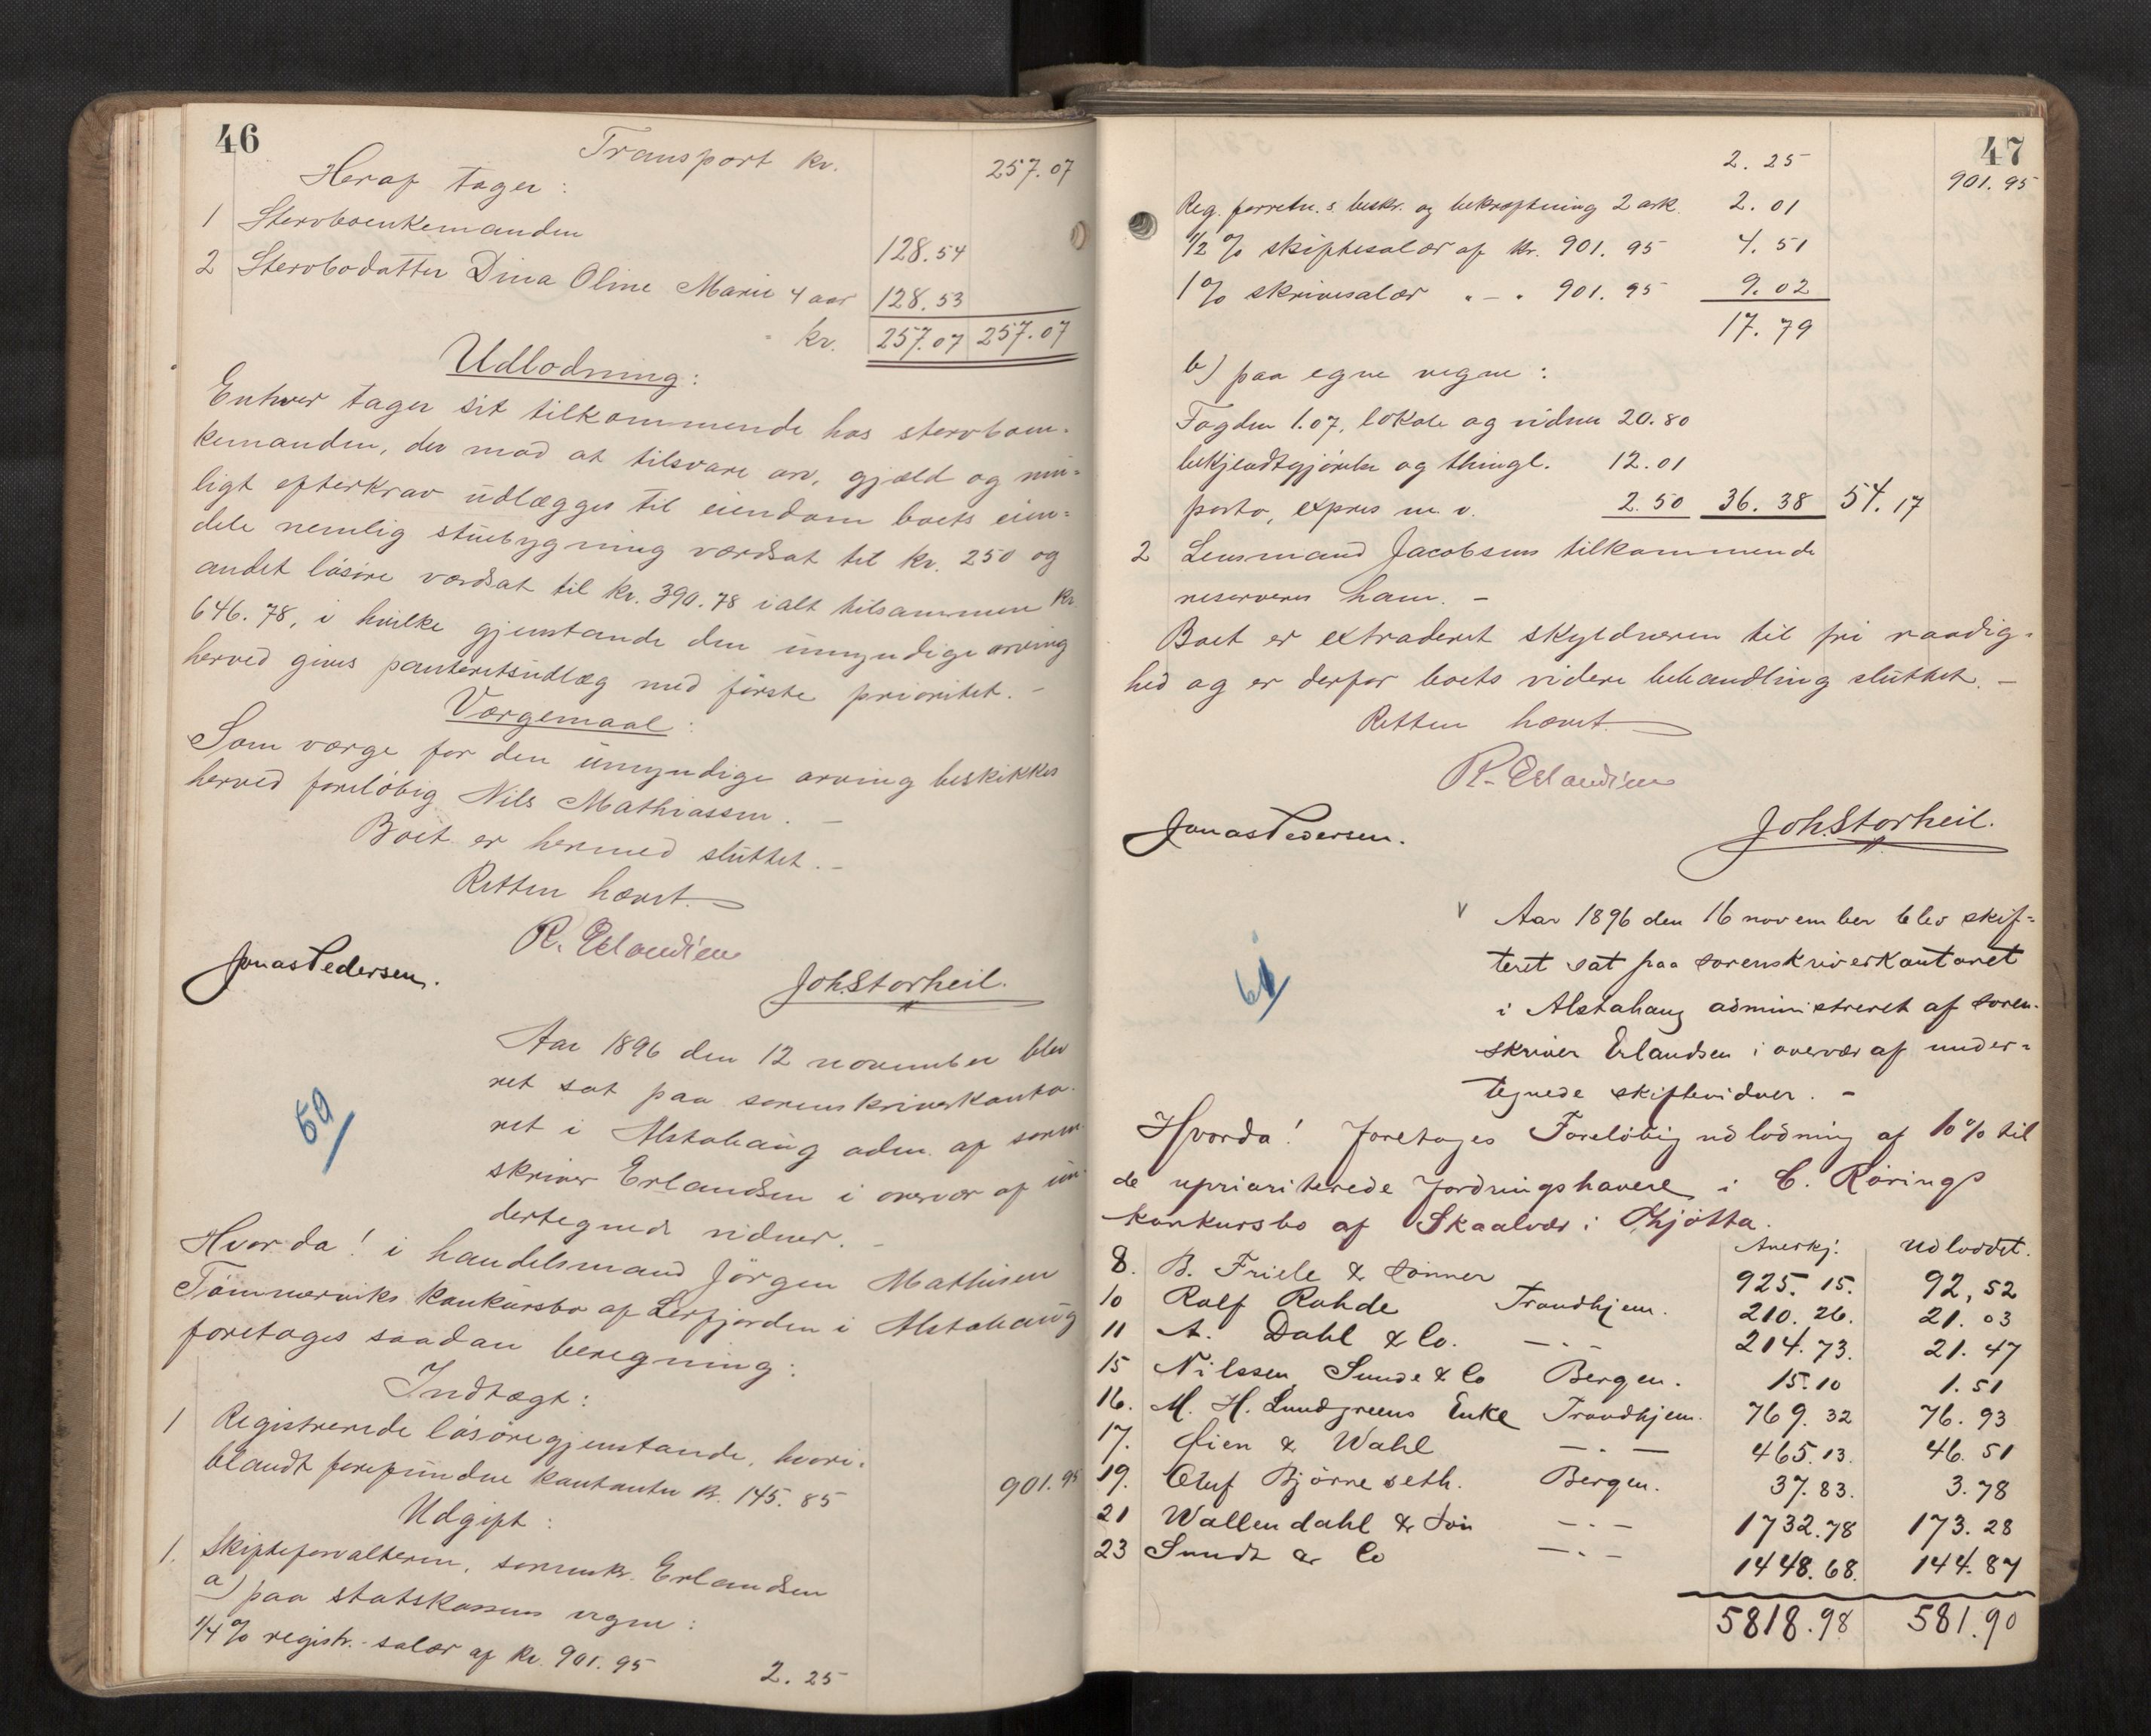 46
Transport kr. 257.07
Heraf tager:
1 Stervboenkemanden 128.54
2 Stervbodatter Dina Oline Marie 4 aar 128.53
kr. 257.07 257.07
Udlodning:
Enhver tager sit tilkommende hos stervboen-
kemanden, der mod at tilsvare arv, gjæld og mu-
ligt efterkrav udlægges til eiendom boets eien-
dele nemlig stuebygning værdsat til kr. 250 og
andet løsøre værdsat til kr. 390.78 ialt tilsammen kr.
646.78, i hvilke gjenstande den umyndige arving
herved gives panteretsudlæg med første prioritet. -
Værgemaal:
Som værge for den umyndige arving beskikkes
herved foreløbig Nils Mathiassen. -
Boet er hermed sluttet. -
Retten hævet.
R. Erlandsen
Jonas Pedersen.
Joh. Storheil.
59
Aar 1896 den 12 november blev
ret sat paa sorenskriverkonto-
ret i Alstahaug adm. af soren-
skriver Erlandsen i overvær af un-
dertegnede vidner. -
Hvor da! i handelsmand Jørgen Mathisen
Tømmerviks konkursbo af Leirfjorden i Alstahaug
foretages saadan beregning:
Indtægt:
1 Registrerede løsøregjenstande, hvori-
blandt forefundne kontanter kr. 145.85 901.95
Udgift:
1. Skifteforvalteren, sorenskr. Erlandsen
a) paa statskassens vegne:
1/4 % registr.-salær af kr. 901.95 2.25
47
2.25 901.95
Reg. forretn.s beskr. og bekræftning 2 ark. 2.01
1/2 % skiftesalær af kr. 901.95 4.51
1 % skriversalær " - " 901.95 9.02
17.79
b) paa egne vegne:
Fogden 1.07, lokale og vidner 20.80
bekjendtgjørelse og thingl. 12.01
porto, expres m.v. 2.50 36.38 54.17
2 Lensmand Jacobsens tilkommende
reserveres ham. -
Boet er extraderet skyldneren til fri raadig-
hed og er derfor boets videre behandling sluttet. -
Retten hævet.
R. Erlandsen
Jonas Pedersen.
Joh. Storheil.
Aar 1896 den 16 november blev skif-
teret sat paa sorenskriverkontoret
i Alstahaug administreret af soren-
skriver Erlandsen i overvær af under-
tegnede skiftevidner. -
Hvorda! foretages Foreløbig udlodning af 10% til
de upriariterede fordringshavere i C. Rørings
konkursbo af Skaalvær i Thjøtta.
Anerkj. Udloddet.
8. B. Friele & Sønner 925.15. 92,52
10 Ralf Rohde Trondhjem. 210.26. 21.03
11 A. Dahl & Co. -.- 214.73. 21.47
15 Nilssen, Sunde & Co Bergen. 15.10 1.51
16. M. H. Lundgreens Enke Trondhjem. 769.32 76.93
17. Øien & Wahl -.- 465.13. 46.51
19. Oluf Bjørneseth. Bergen. 37.83. 3.78
21 Wallendahl & Søn -.- 1732.78 173.28
23 Sundt & Co -.- 1448.68. 144.87
5818.98 581.90